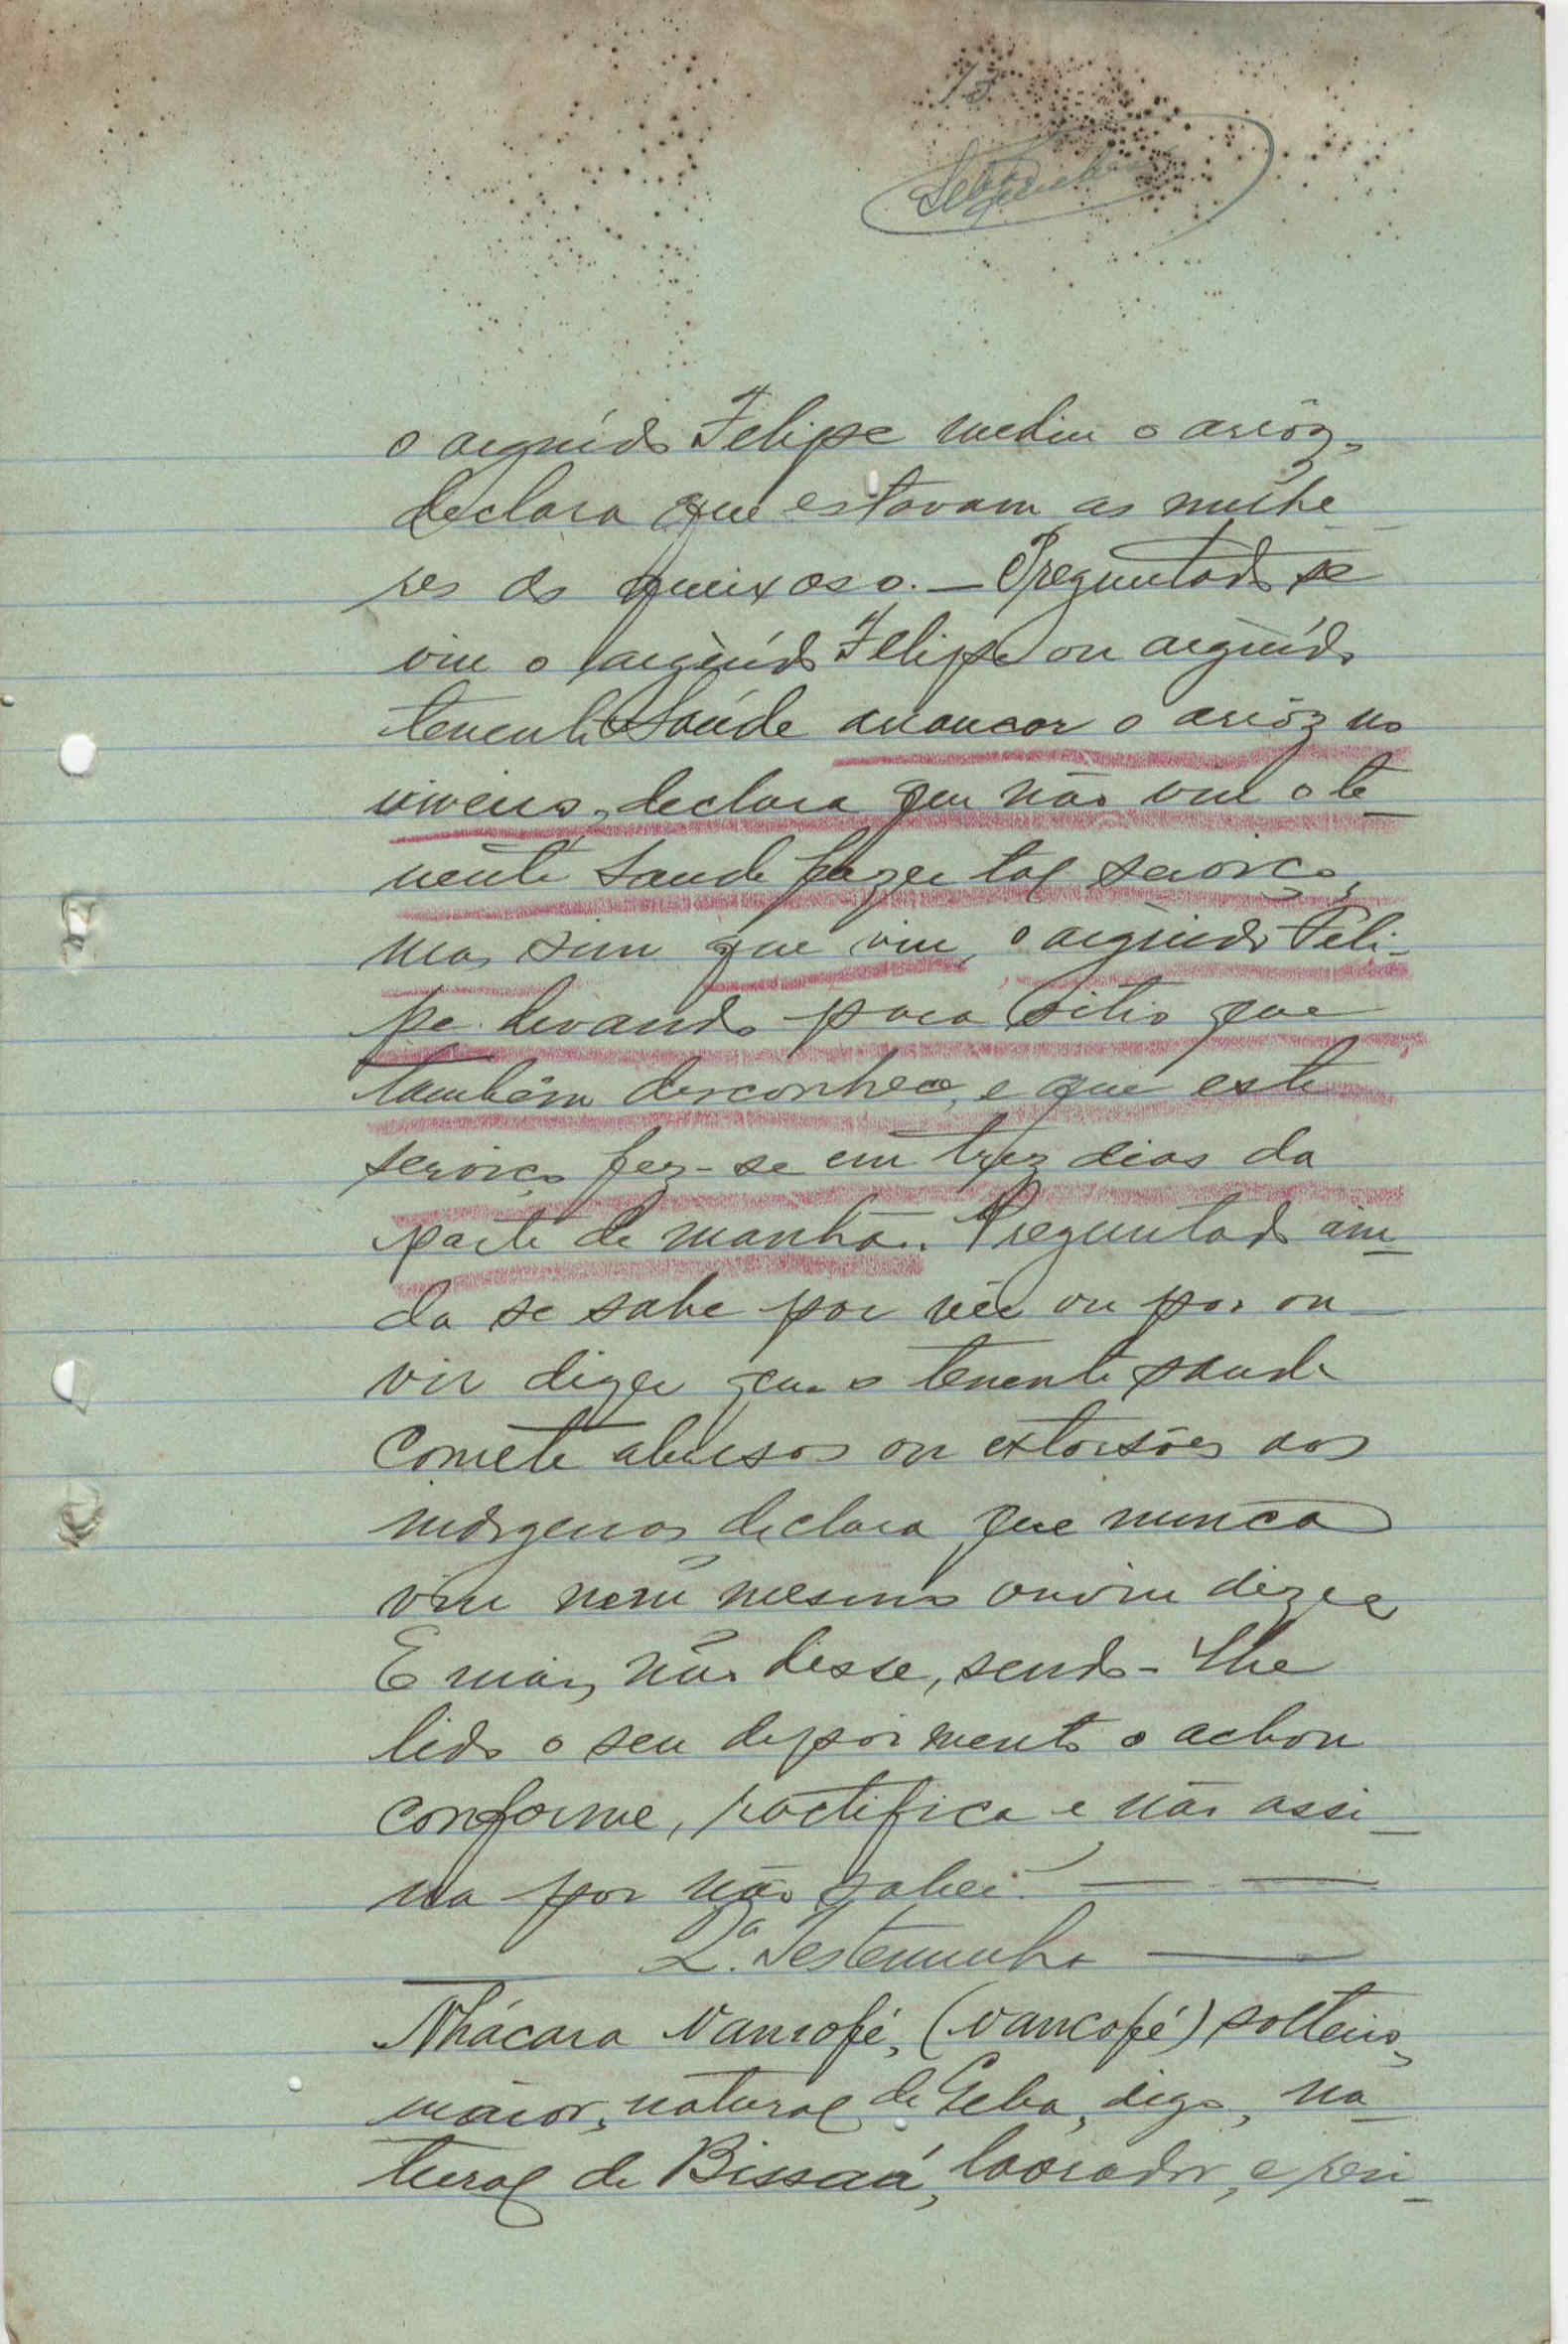 13
o arguido Felipe mediu o arrôz,
declara que estavam as mulhe-
res do queixoso. — Preguntado se
viu o argùído Felipe ou argùído
tenente Saúde arrancar o arrôz no
viveiro, declara que não viu o te-
nente Saude fazer tal serviço,
mas sim que viu, o argùido Feli-
pe levando para sitio que
tambêm desconhece, e que este
serviço fez-se em trez dias da
parte de manhã. Preguntado ain-
da se sabe por vêr ou por ou-
vir dizer que o tenente saude
comete abusos ou extorsões aos
indigenas declara que nunca
viu nem mesmo ouviu dizer
E mais não disse, sendo-lhe
lido o seu depoimento o achou
conforme, ractifica e não assi-
na por não saber. — —
2.ª Testemunha —
Nhácara Vancofé, (Vancofé) solteiro,
maior, natural de Geba, digo, na-
tural de Bissau, lavrador, e resi-